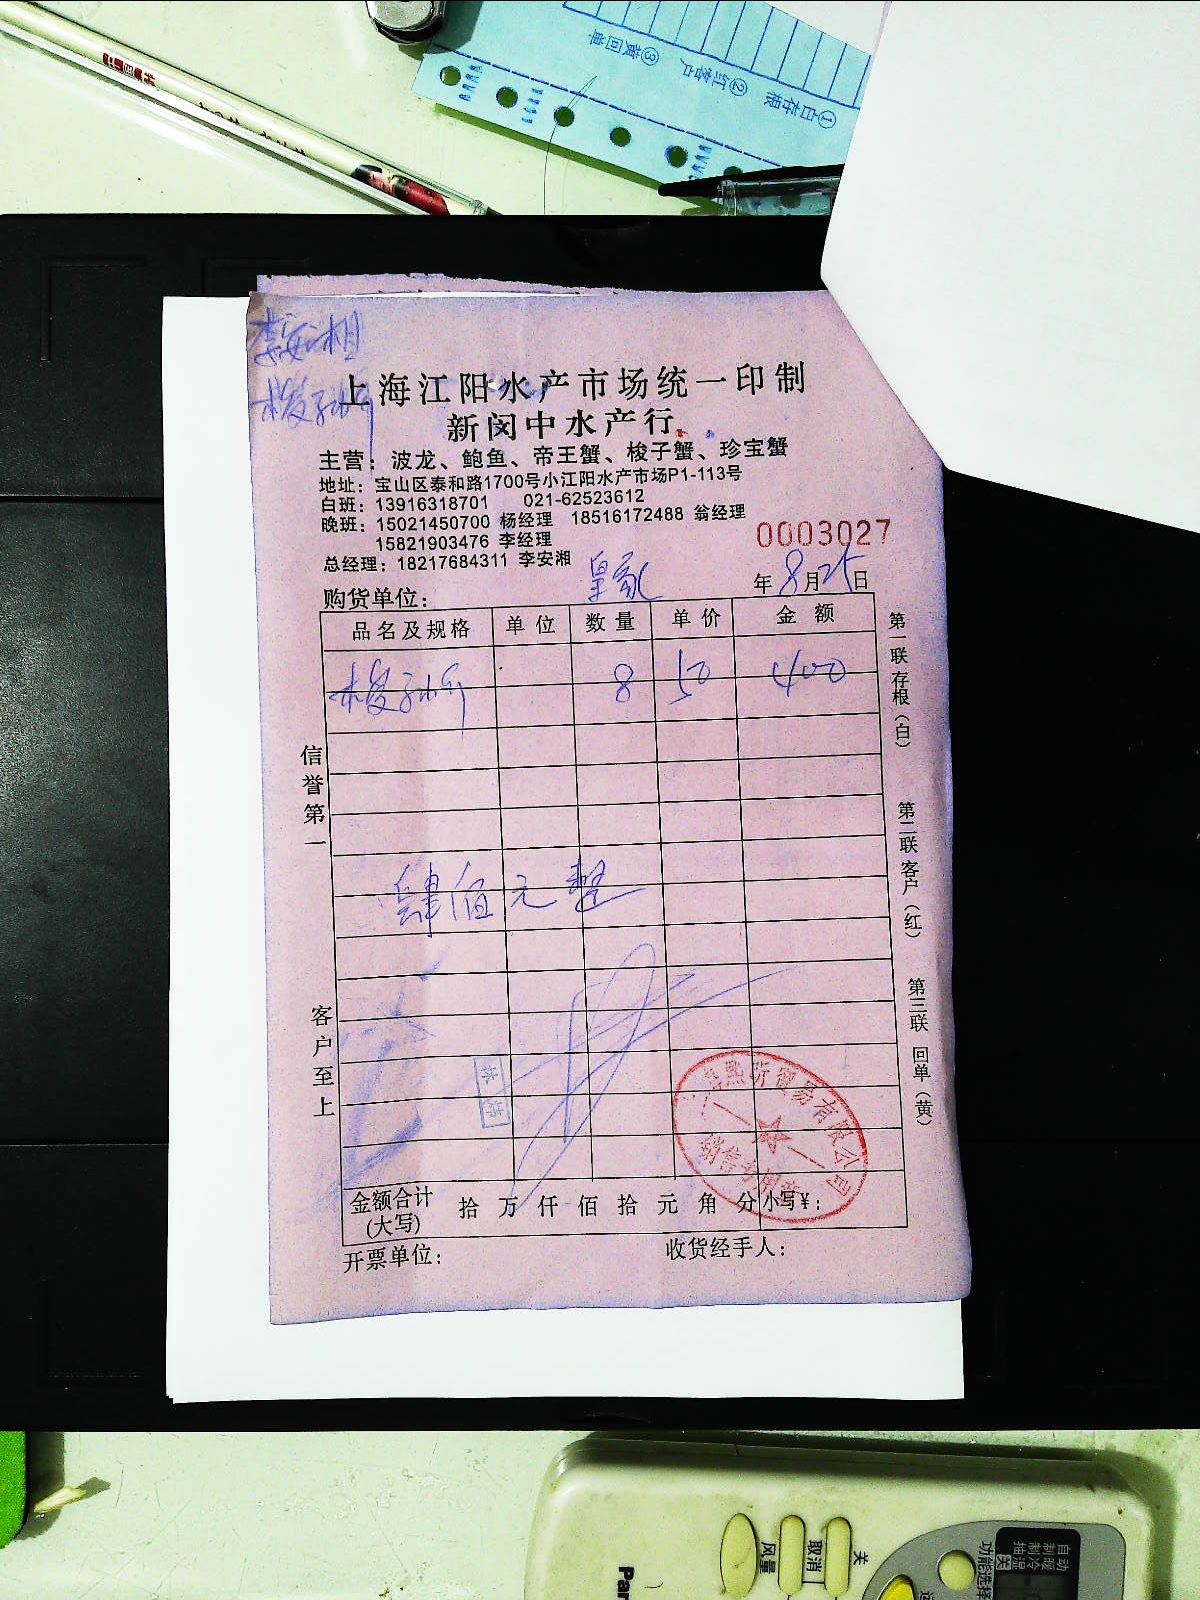 ③黄回单
②红客户
①白存根
中国林
李安湘
梭子蟹
上海江阳水产市场统一印制
新闵中水产行
主营：波龙、鲍鱼、帝王蟹、梭子蟹、珍宝蟹
地址：宝山区泰和路1700号小江阳水产市场P1-113号
白班：13916318701 021-62523612
晚班：15021450700 杨经理 18516172488 翁经理
15821903476 李经理
总经理：18217684311 李安湘
0003027
购货单位： 皇家 年8月25日
品名及规格 单位 数量 单价 金额
梭子蟹 8 50 400
肆佰元整
信誉第一
客户至上
第一联存根（白）
第二联客户（红）
第三联回单（黄）
贸易有限公司
金额合计(大写) 拾万仟佰拾元角分 小写￥：
开票单位： 收货经手人：
风量
取消
关
功能选择
关
自动